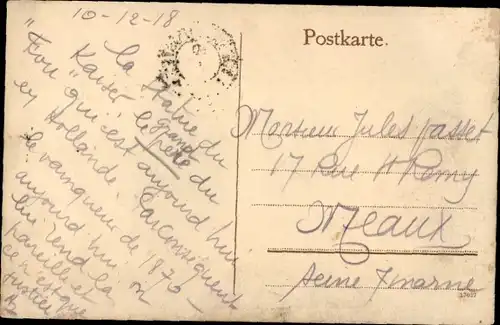 10-12-18
La Statue du
Kaiser le grand père du
"Fou" qui est aujourd'hui
en Hollande. Par conséquent
le vainqueur de 1870 -
aujourd'hui on
lui rend la
pareille et
ce n'est que
justice
Postkarte.
Monsieur Jules Passet
17 Rue St Remy
Meaux
Seine & Marne